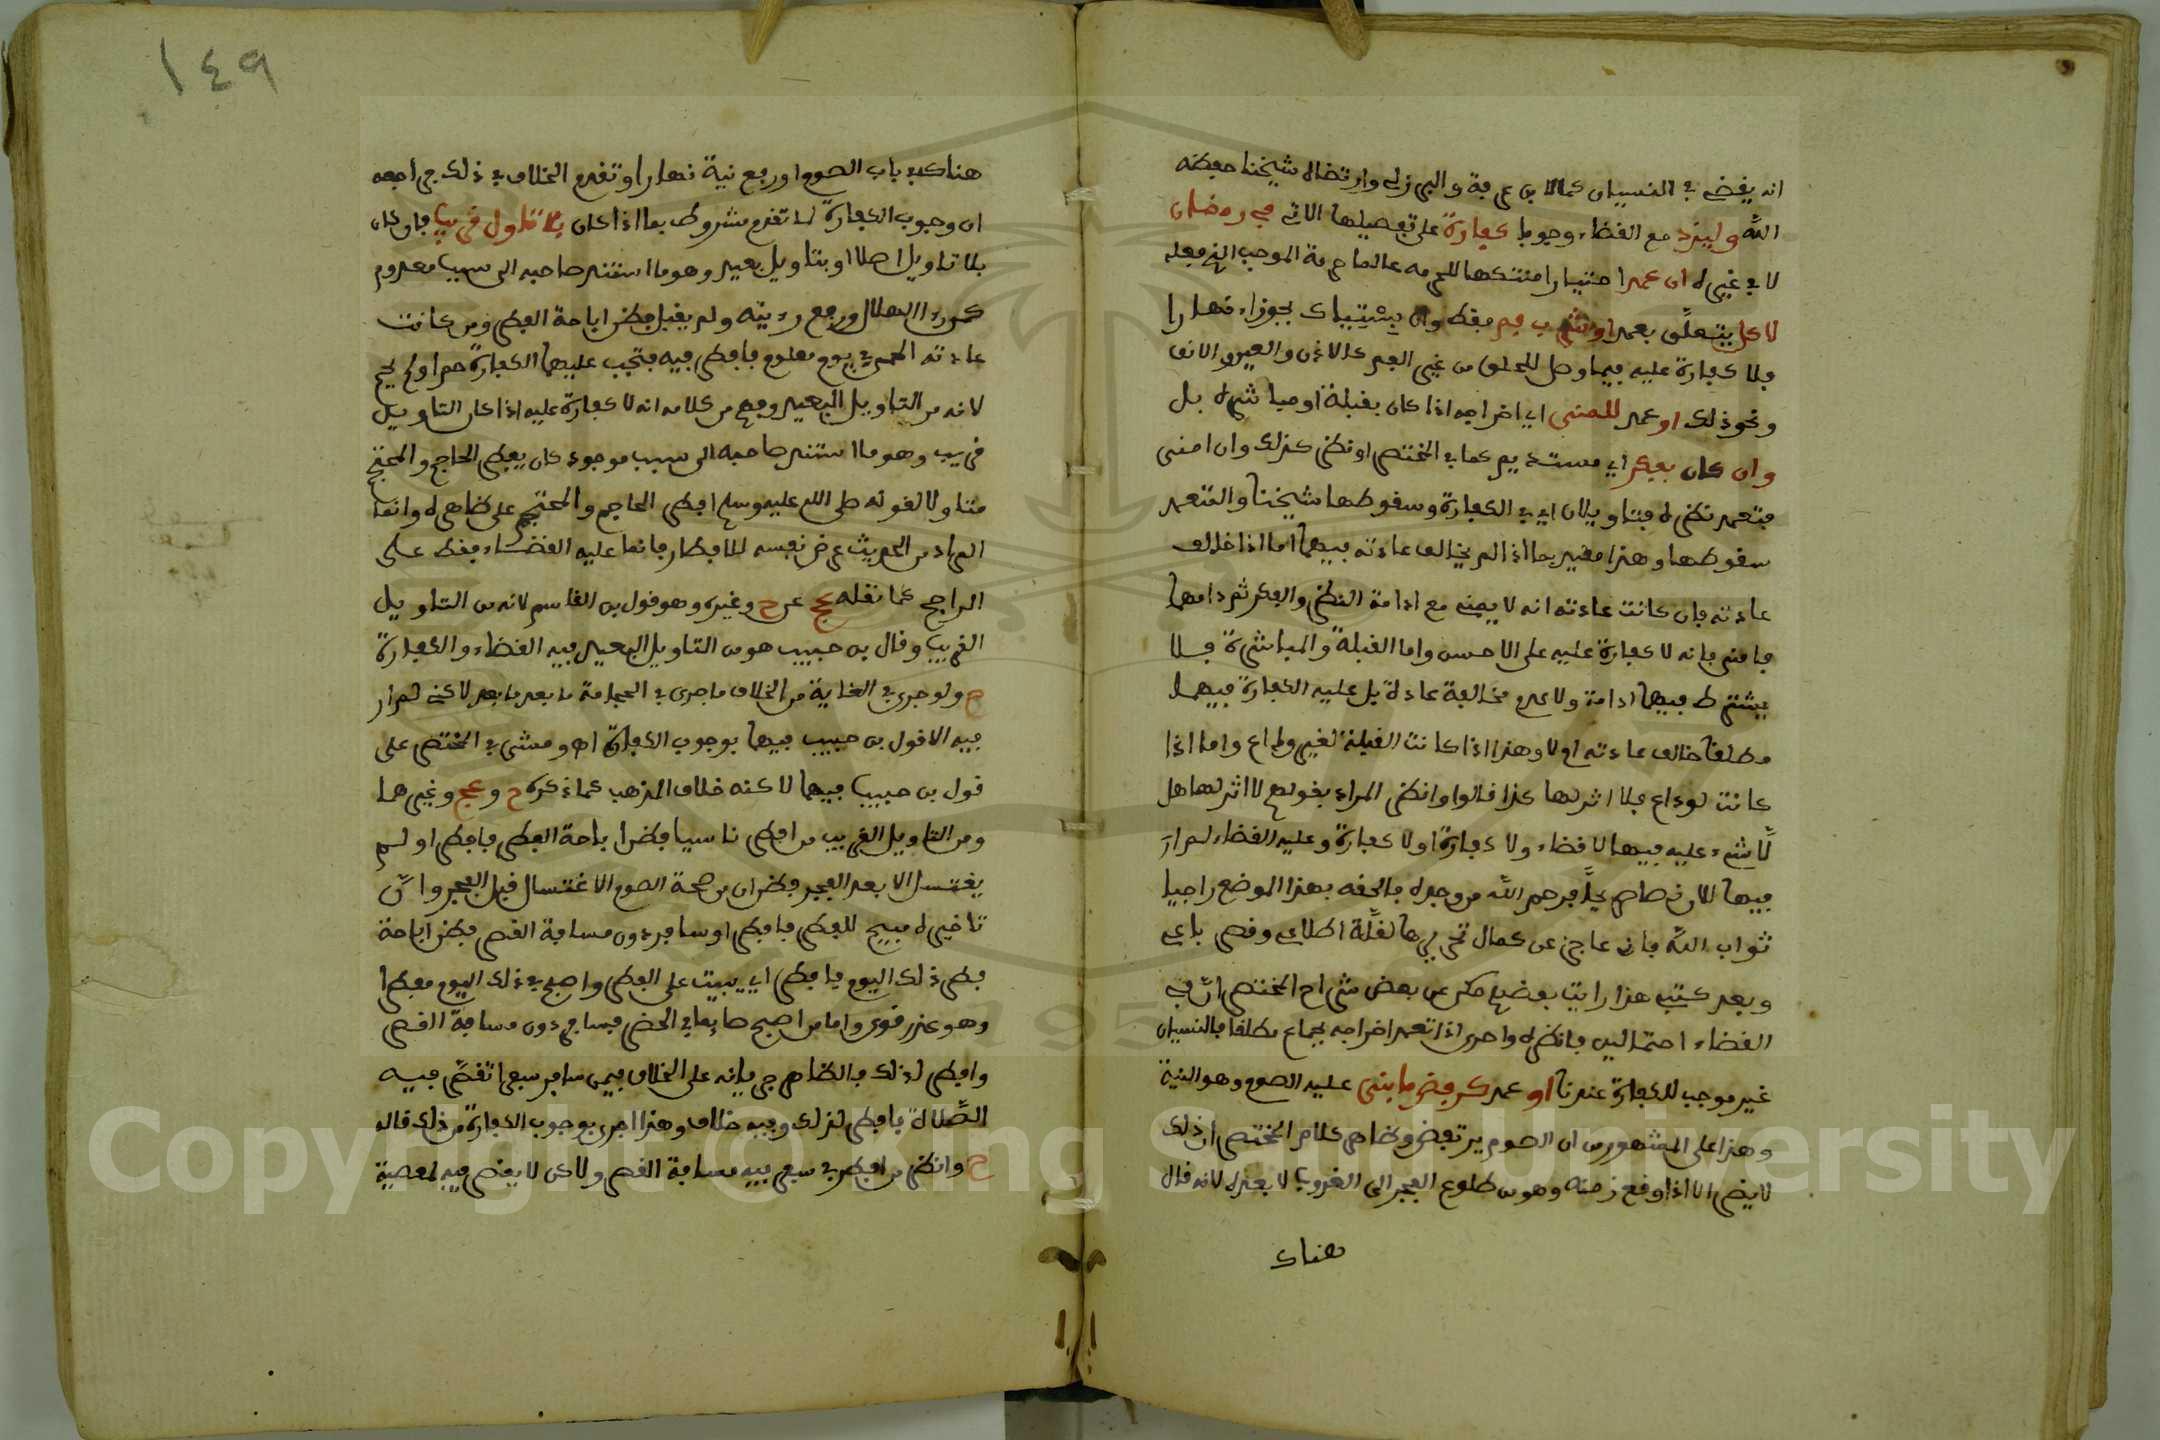 انه يقضي في النسيان كمالابن عرفة والبرزلي وارتضاه شيخنا حفظه
الله وليزد مع القضاء وجوبا كفارة على تفصيلها الاتي في رمضان
لا في غيره ان عمدا اختيارا منتهكا للحرمه عالما حرمة الموجب الذي فعله
لا كل يتعلق بعمد او شرب فم فقط وان بستياك بجوزاء نهارا
فلا كفارة عليه فيما وصل للحلق من غير الفم كالاذن والعين والانف
ونحو ذلك او عمد للمني اي اخراجه اذا كان بقبلة او مباشرة بل
وان كان بفكر اي مستديم كما في المختصر او نظر كذلك وان امنى
فتعمد نظرة فتاويلان اي في الكفارة وسقوطها شيخنا والمعتمد
سقوطها وهذا مقيد بما اذا لم يخالف عادته فيهما اما اذا خالف
عادته فان كانت عادته انه لا يمنه مع ادامة النظر والفكر ثم دامهما
فامنى فانه لا كفارة عليه على الاحسن واما القبلة والمباشرة فلا
يشترط فيهما ادامة ولا عدم مخالفة عادة بل عليه الكفارة فيهما
مطلقا خالف عادته ام لا وهذا اذا كانت القبلة لغير وداع واما اذا
كانت لوداع فلا اثر لها كذا قالوا وانظر المراد بقولهم لا اثر لها هل
لا شيء عليه فيها لا قضاء ولا كفارة او لا كفارة وعليه القضاء لم ار
فيها للان نصا صريحا فرحم الله من وجده فالحقه بهذا الموضع راجيا
ثواب الله فان عاجز عن كمال تحريرها لقلة اطلاعي وقصر باعي
وبعد كتب هذا رايت بعضهم ذكر عن بعض شراح المختصر ان في
القضاء احتمالين فانظره واحرى اذا تعمد اخراجه بجماع مطلقا فالنسيان
غير موجب للكفارة عندنا او عمد كرفض ما بني عليه الصوم وهو النية
وهذا على المشهور من ان الصوم يرتفض وظاهر كلام المختصر ان ذلك
لا يضر الا اذا وقع زمنه وهو من طلوع الفجر الى الغروب لا بعده لانه قال
هناك
١٤٩
هناك في باب الصوم او رفع نية نهارا وتقدم الخلاف في ذلك مراجعه
ان وجوب الكفارة لما تقدم مشروط بما اذا كان بلا تاول قريب فان كان
بلا تاويل اصلا او بتاويل بعيد وهو ما استند صاحبه الى سبب معدوم
كمن راى الهلال ورفع رءيته ولم يقبل فظن اباحة الفطر ومن كانت
عادته الحمى في يوم معلوم فافطر فيه فتجب عليهما الكفارة حم او لم يحم
لانه من التاويل البعيد وفهم من كلامه انه لا كفارة عليه اذا كان التاويل
قريب وهو ما استند صاحبه الى سبب موجود كان يفطر الحاجم والمحتجم
متاولا لقوله صلى الله عليه وسلم افطر الحاجم والمحتجم على ظاهره وانما
المراد من الحديث عرض نفسه للافطار فانما عليه القضاء فقط على
الراجح كما نقله عج عن ح وغيره وهو قول بن القاسم لانه من التاويل
القريب وقال بن حبيب هو من التاويل البعيد فيه القضاء والكفارة
ح ولو جرى في الغاية من الخلاف ما جرى في الحجامة ما بعد ما بعد لاكني لم ار
فيه الا قول بن حبيب فيهما بوجوب الكفارة اه ومشى في المختصر على
قول بن حبيب فيهما لاكنه خلاف المذهب كما ذكره ح وعج وغيرهما
ومن التاويل القريب من افطر ناسيا فظن اباحة الفطر فافطر او لم
يغتسل الا بعد الفجر فظن ان من صحة الصوم الاغتسال قبل الفجر وان
تاخيره مبيح للفطر فافطر او سافر دون مسافة القصر فظن اباحة
فطر ذلك اليوم فافطر اي بيت على الفطر واصبح في ذلك اليوم مفطرا
وهو عذر قوي واما من اصبح صايما في الحضر فسافر دون مسافة القصر
وافطر لذلك فالظاهر جريانه على الخلاف فيمن سافر سفرا تقصر فيه
الصلاة فافطر لذلك وفيه خلاف وهذا احرى بوجوب الكفارة من ذلك قاله
ح وانظر من افطر في سفر فيه مسافة القصر ولاكن لا يقصر فيه لمعصية
Copyright © King Saud University